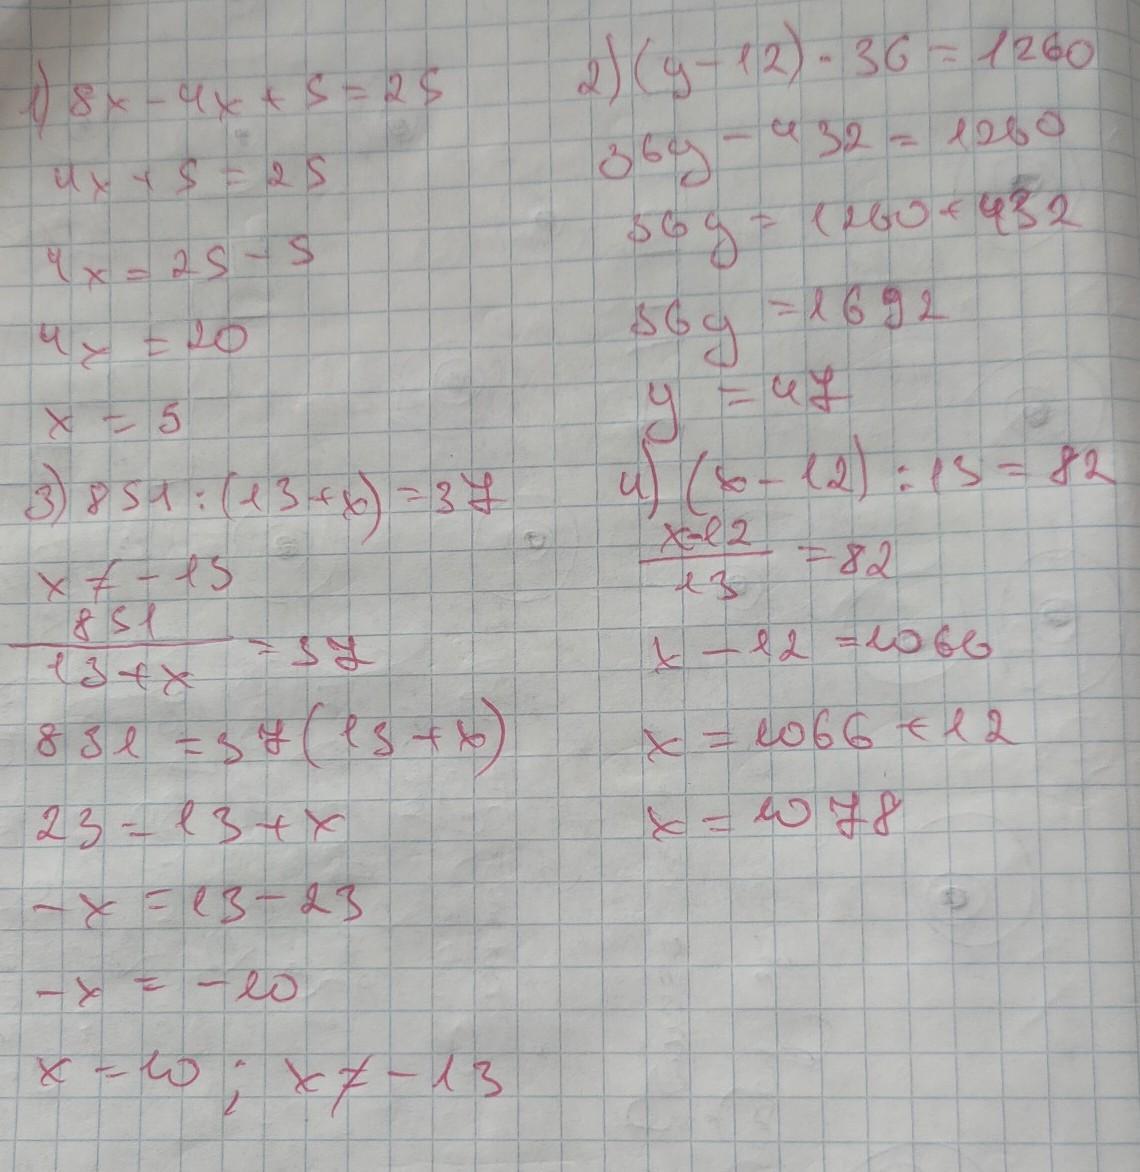 1) 8x - 4x + 5 = 25
4x + 5 = 25
4x = 25 - 5
4x = 20
x = 5
2) (y - 12) · 36 = 1260
36y - 432 = 1260
36y = 1260 + 432
36y = 1692
y = 47
3) 851 : (13 + x) = 37
x ≠ -13
851
13 + x = 37
851 = 37(13 + x)
23 = 13 + x
-x = 13 - 23
-x = -10
x = 10 ; x ≠ -13
4) (x - 12) : 13 = 82
x - 12
13 = 82
x - 12 = 1066
x = 1066 + 12
x = 1078